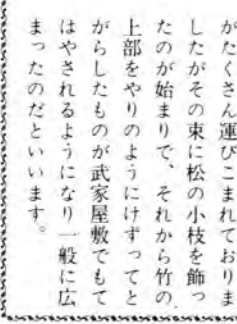 がたくさん運びこまれておりま
したがその束に松の小枝を飾っ
たのが始まりで、それから竹の、
上部をやりのようにけずってと
がらしたものが武家屋敷でもて
はやされるようになり一般に広
まったのだといいます。